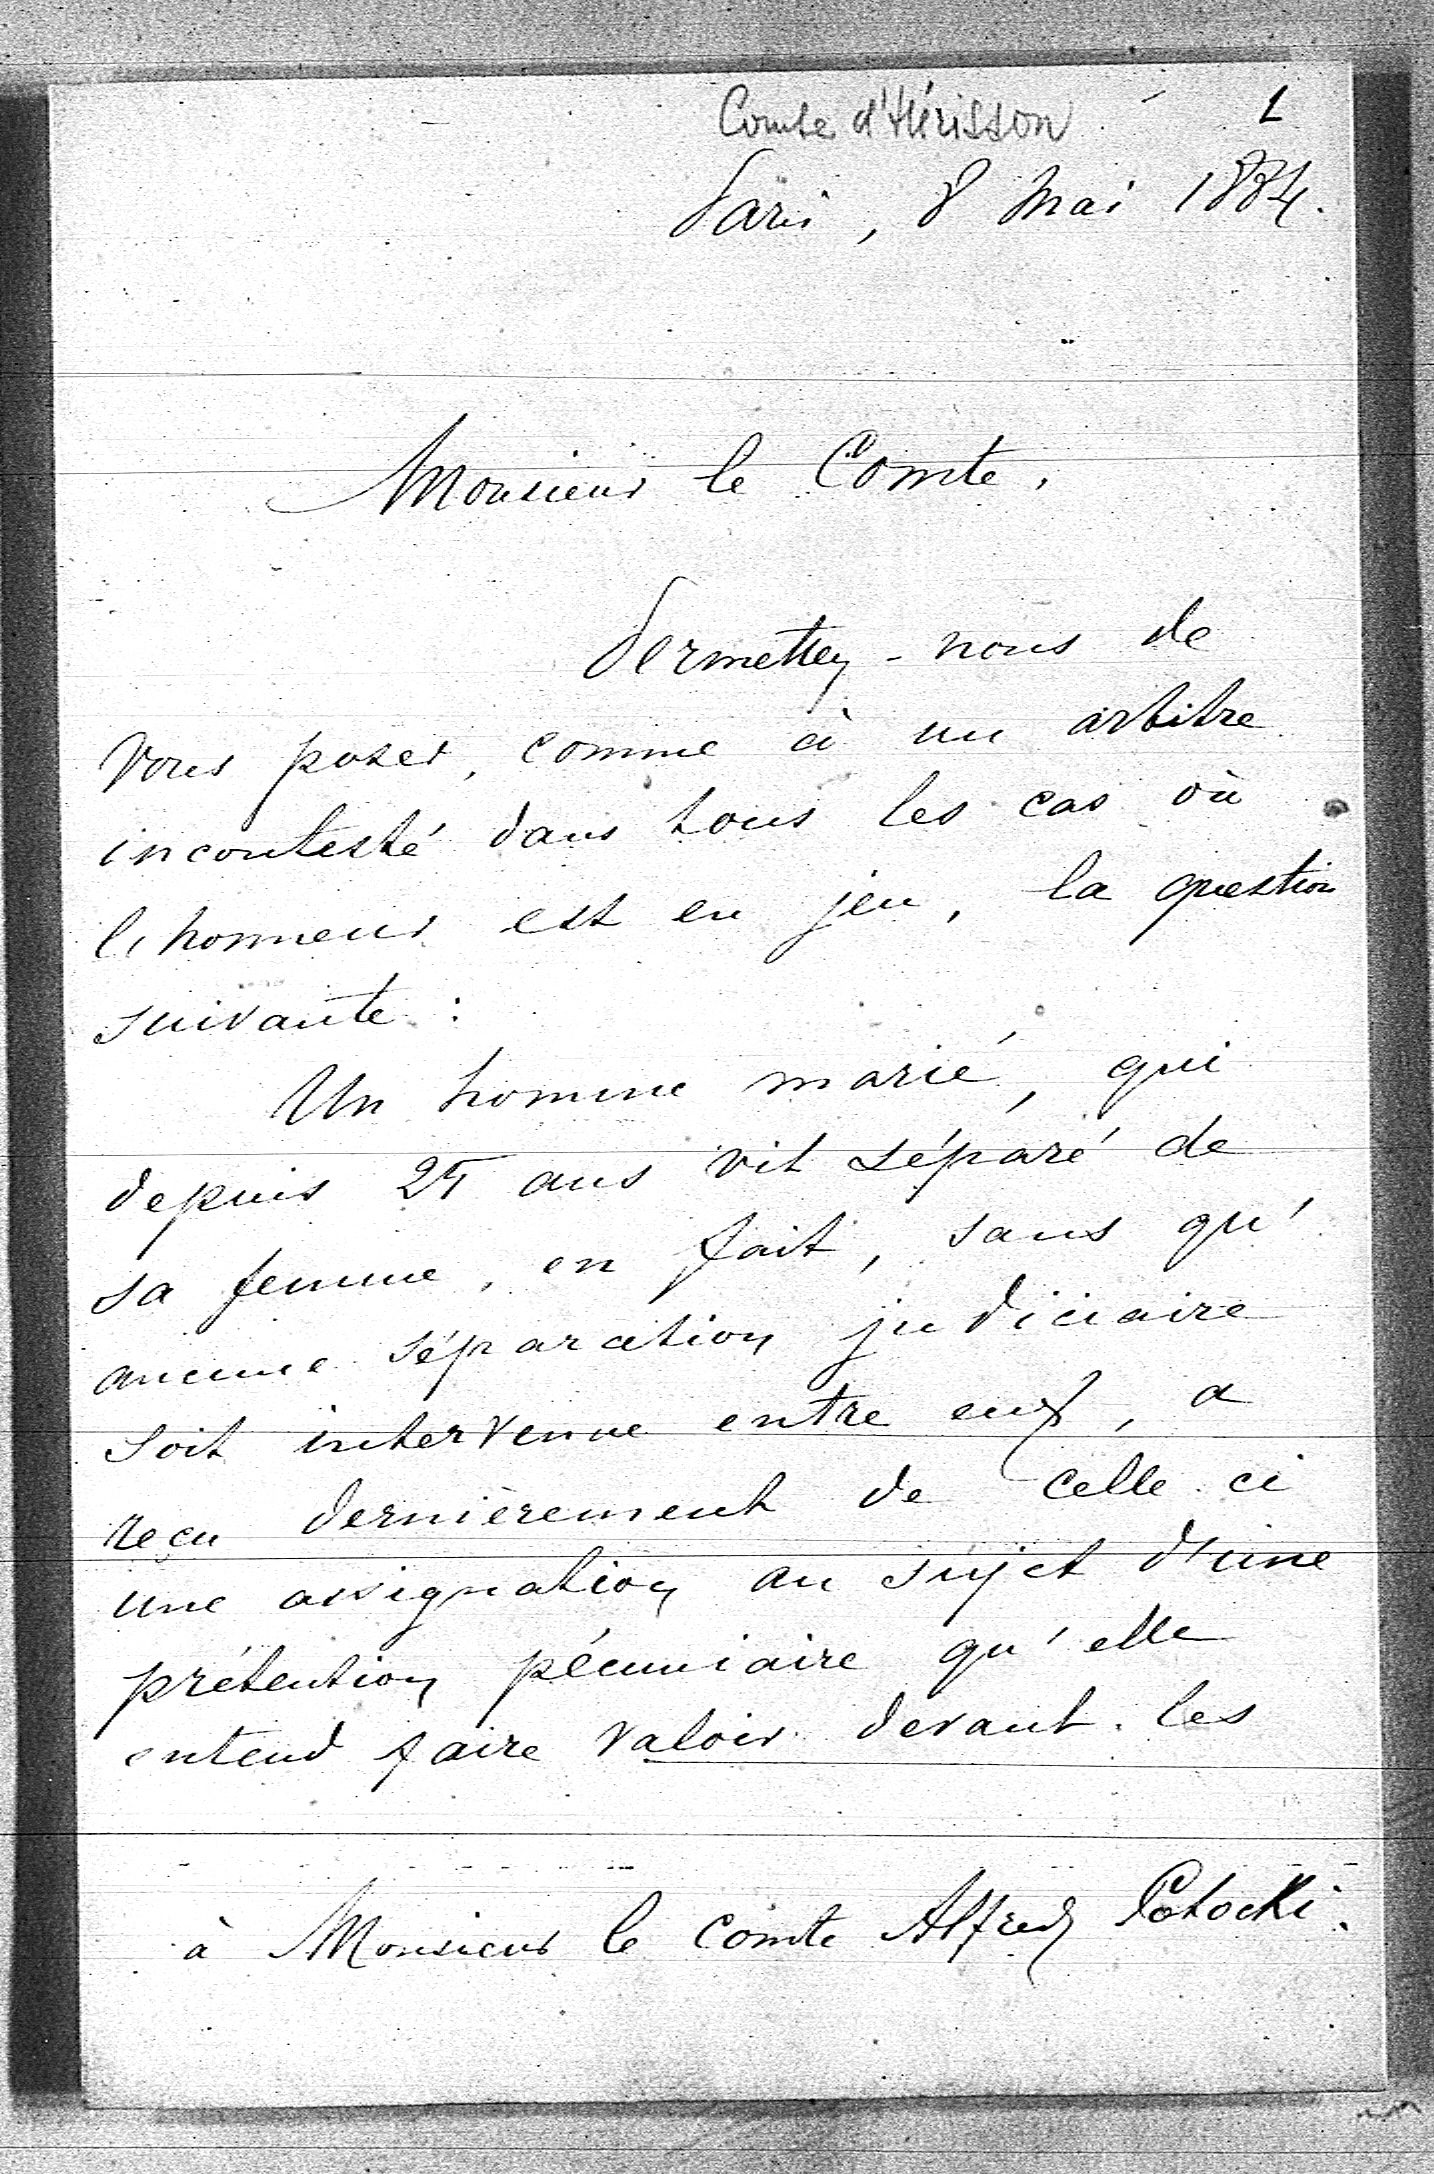 Comte d'Hérisson 1
Paris, 8 Mai 1884.
Monsieur le Comte,
Permettez-nous de
vous poser, comme à un arbitre
incontesté dans tous les cas où
l'honneur est en jeu, la question
suivante :
Un homme marié, qui
depuis 25 ans vit séparé de
sa femme, en fait, sans qu'
aucune séparation judiciaire
soit intervenue entre eux, a
reçu dernièrement de celle ci
une assignation au sujet d'une
prétention pécuniaire qu'elle
entend faire valoir devant les
à Monsieur le Comte Alfred Potocki.